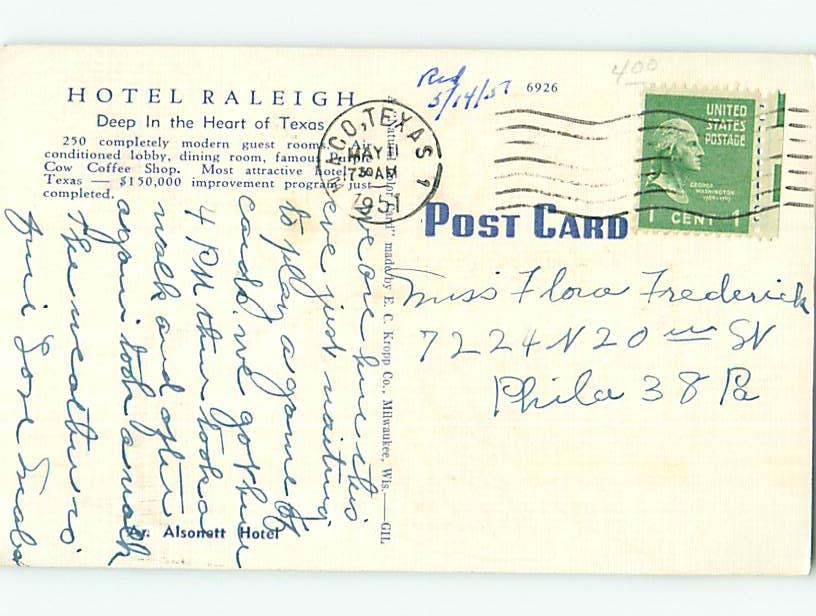 HOTEL RALEIGH
Deep In the Heart of Texas
250 completely modern guest rooms. Air
conditioned lobby, dining room, famous Purple
Cow Coffee Shop. Most attractive hotel in
Texas — $150,000 improvement program just
completed.
We are here this
eve just waiting
to play a game of
cards. we got here
4 PM then took a
walk and after
again took a walk
The weather is
fine Love
Av. Alsonett Hotel
"Natural Color Card" made by E. C. Kropp Co., Milwaukee, Wis.—GIL
WACO, TEXAS 1
MAY 11
7 30 AM
1951
Rec'd
5/14/51
6926
400
UNITED
STATES
POSTAGE
GEORGE
WASHINGTON
1789-1797
1 CENT 1
POST CARD
Miss Flora Frederick
7224 N 20 St
Phila 38 Pa